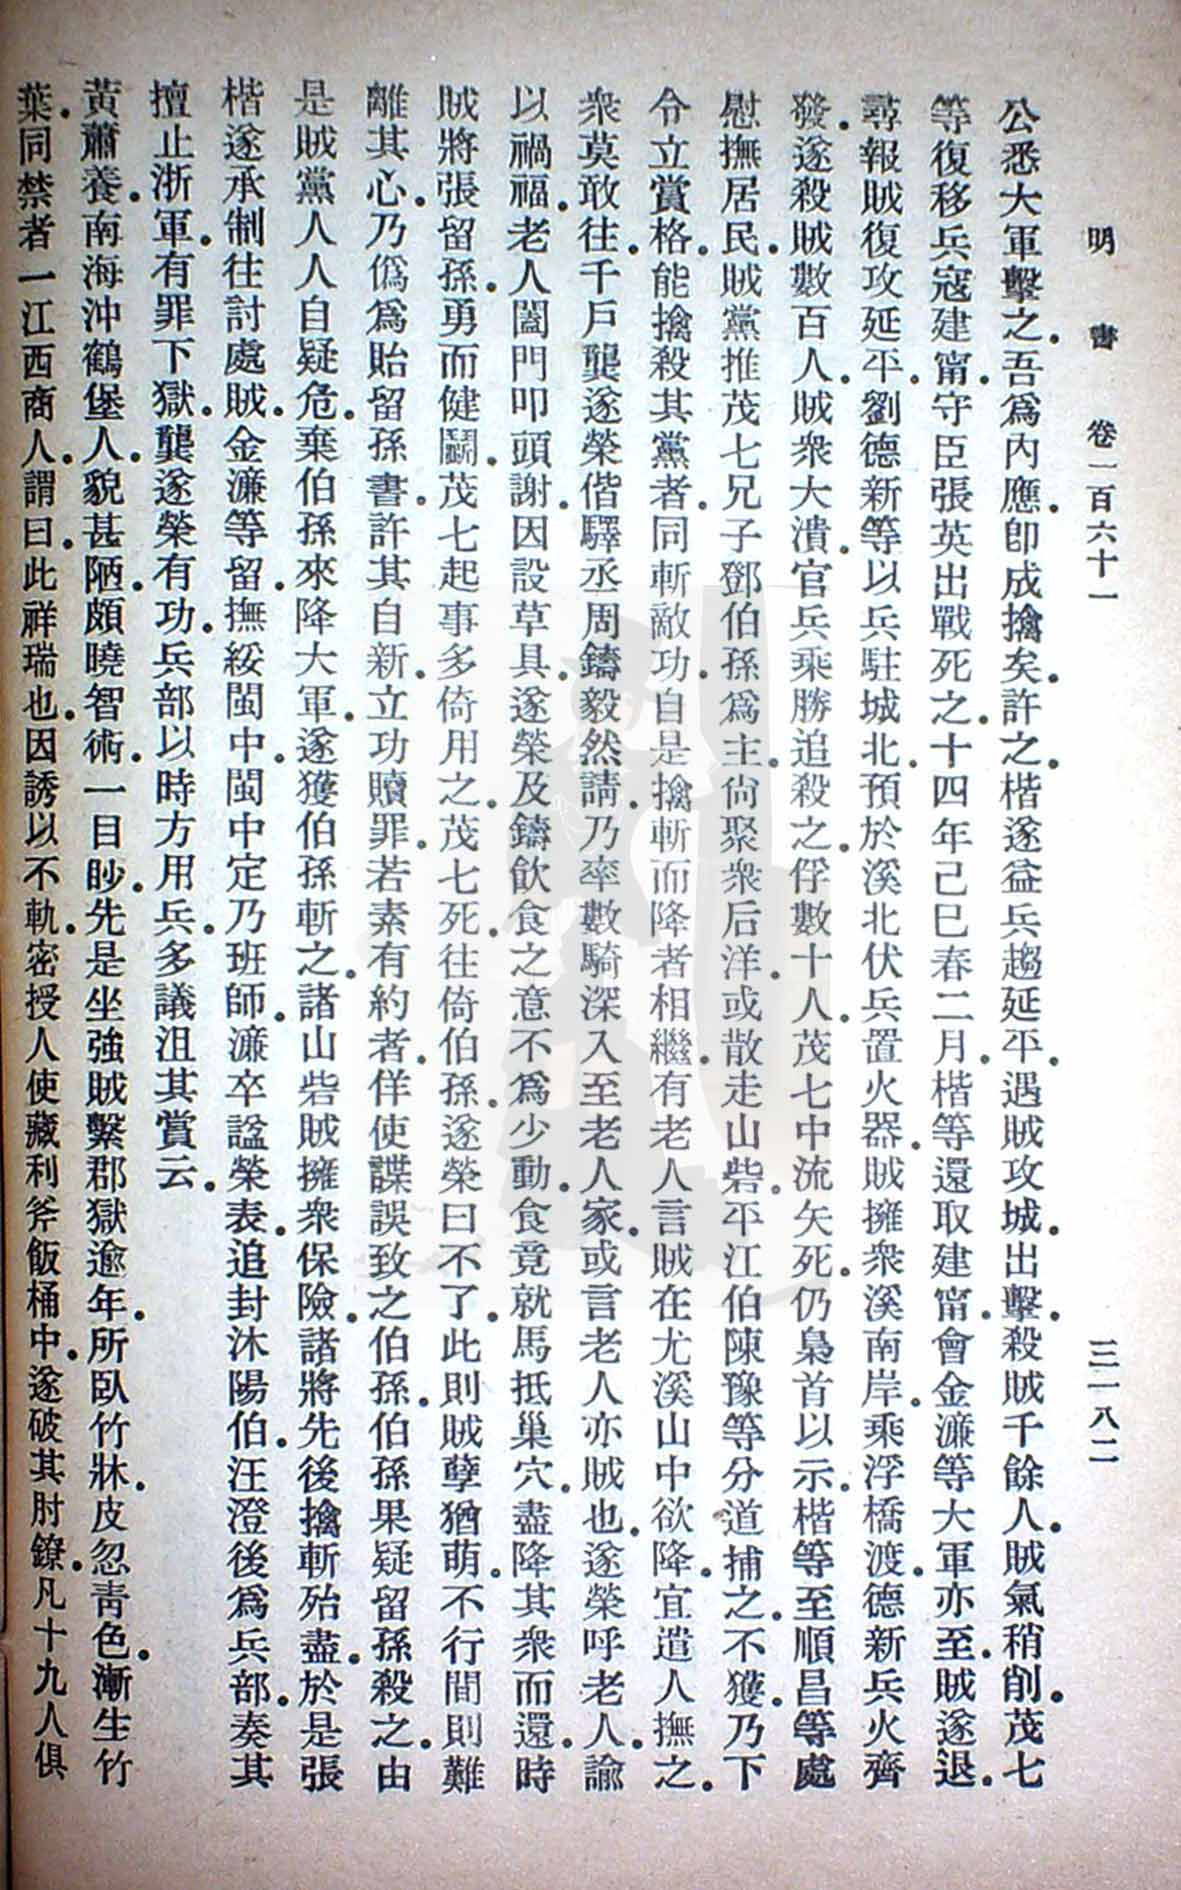 明書　卷一百六十一　三一八二
公悉大軍擊之.吾爲內應.卽成擒矣.許之.楷遂益兵趨延平.遇賊攻城.出擊.殺賊千餘人.賊氣稍削.茂七
等復移兵寇建甯.守臣張英出戰死之.十四年己巳春二月.楷等還取建甯.會金濂等大軍亦至.賊遂退.
尋報賊復攻延平.劉德新等以兵駐城北.預於溪北伏兵置火器.賊擁衆溪南岸.乘浮橋渡.德新兵火齊
發.遂殺賊數百人.賊衆大潰.官兵乘勝追殺之.俘數十人.茂七中流矢死.仍梟首以示.楷等至順昌等處
慰撫居民.賊黨推茂七兄子鄧伯孫爲主.尙聚衆后洋.或散走山砦.平江伯陳豫等分道捕之.不獲.乃下
令立賞格.能擒殺其黨者.同斬敵功.自是擒斬而降者相繼.有老人言賊在尤溪山中欲降.宜遣人撫之.
衆莫敢往.千戶龔遂榮偕驛丞周鑄毅然請.乃率數騎深入至老人家.或言老人亦賊也.遂榮呼老人.諭
以禍福.老人闔門叩頭謝.因設草具.遂榮及鑄飲食之.意不爲少動.食竟就馬抵巢穴.盡降其衆而還.時
賊將張留孫.勇而健鬭.茂七起事多倚用之.茂七死.往倚伯孫.遂榮曰不了.此則賊孽猶萌.不行間則難
離其心.乃僞爲貽留孫書.許其自新.立功贖罪.若素有約者.佯使諜誤致之伯孫.伯孫果疑留孫殺之.由
是賊黨人人自疑危.棄伯孫來降大軍.遂獲伯孫斬之.諸山砦賊擁衆保險.諸將先後擒斬殆盡.於是張
楷遂承制往討處賊.金濂等留.撫綏閩中.閩中定乃班師.濂卒諡榮表.追封沐陽伯.汪澄後爲兵部.奏其
擅止浙軍.有罪下獄.龔遂榮有功.兵部以時方用兵.多議沮其賞云.
黃蕭養.南海沖鶴堡人.貌甚陋.頗曉智術.一目眇.先是坐強賊繫郡獄逾年.所臥竹牀.皮忽靑色.漸生竹
葉.同禁者一江西商人.謂曰.此祥瑞也.因誘以不軌.密授人使藏利斧飯桶中.遂破其肘鐐.凡十九人俱